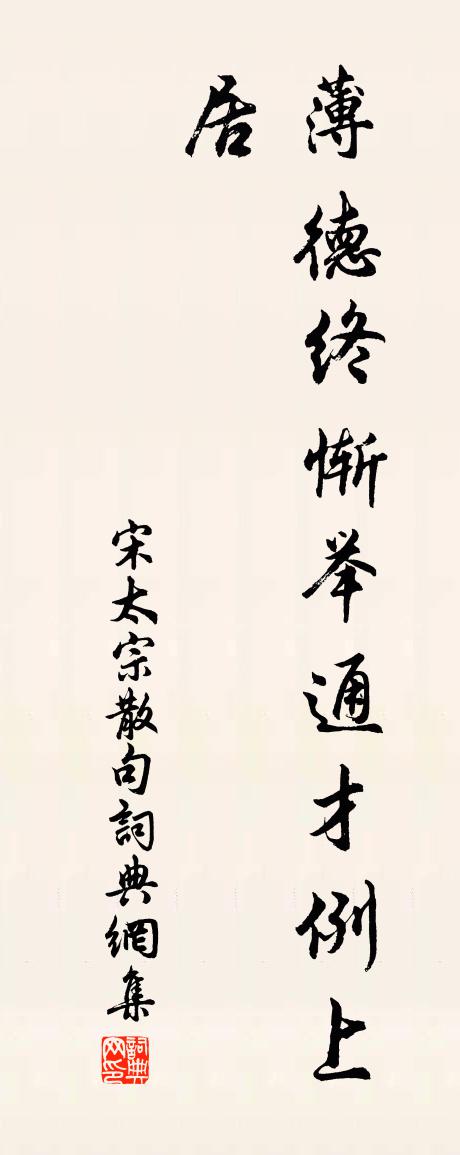 薄德终慚举通才例上
居
宋太宗散句詞典網集
詞典网印